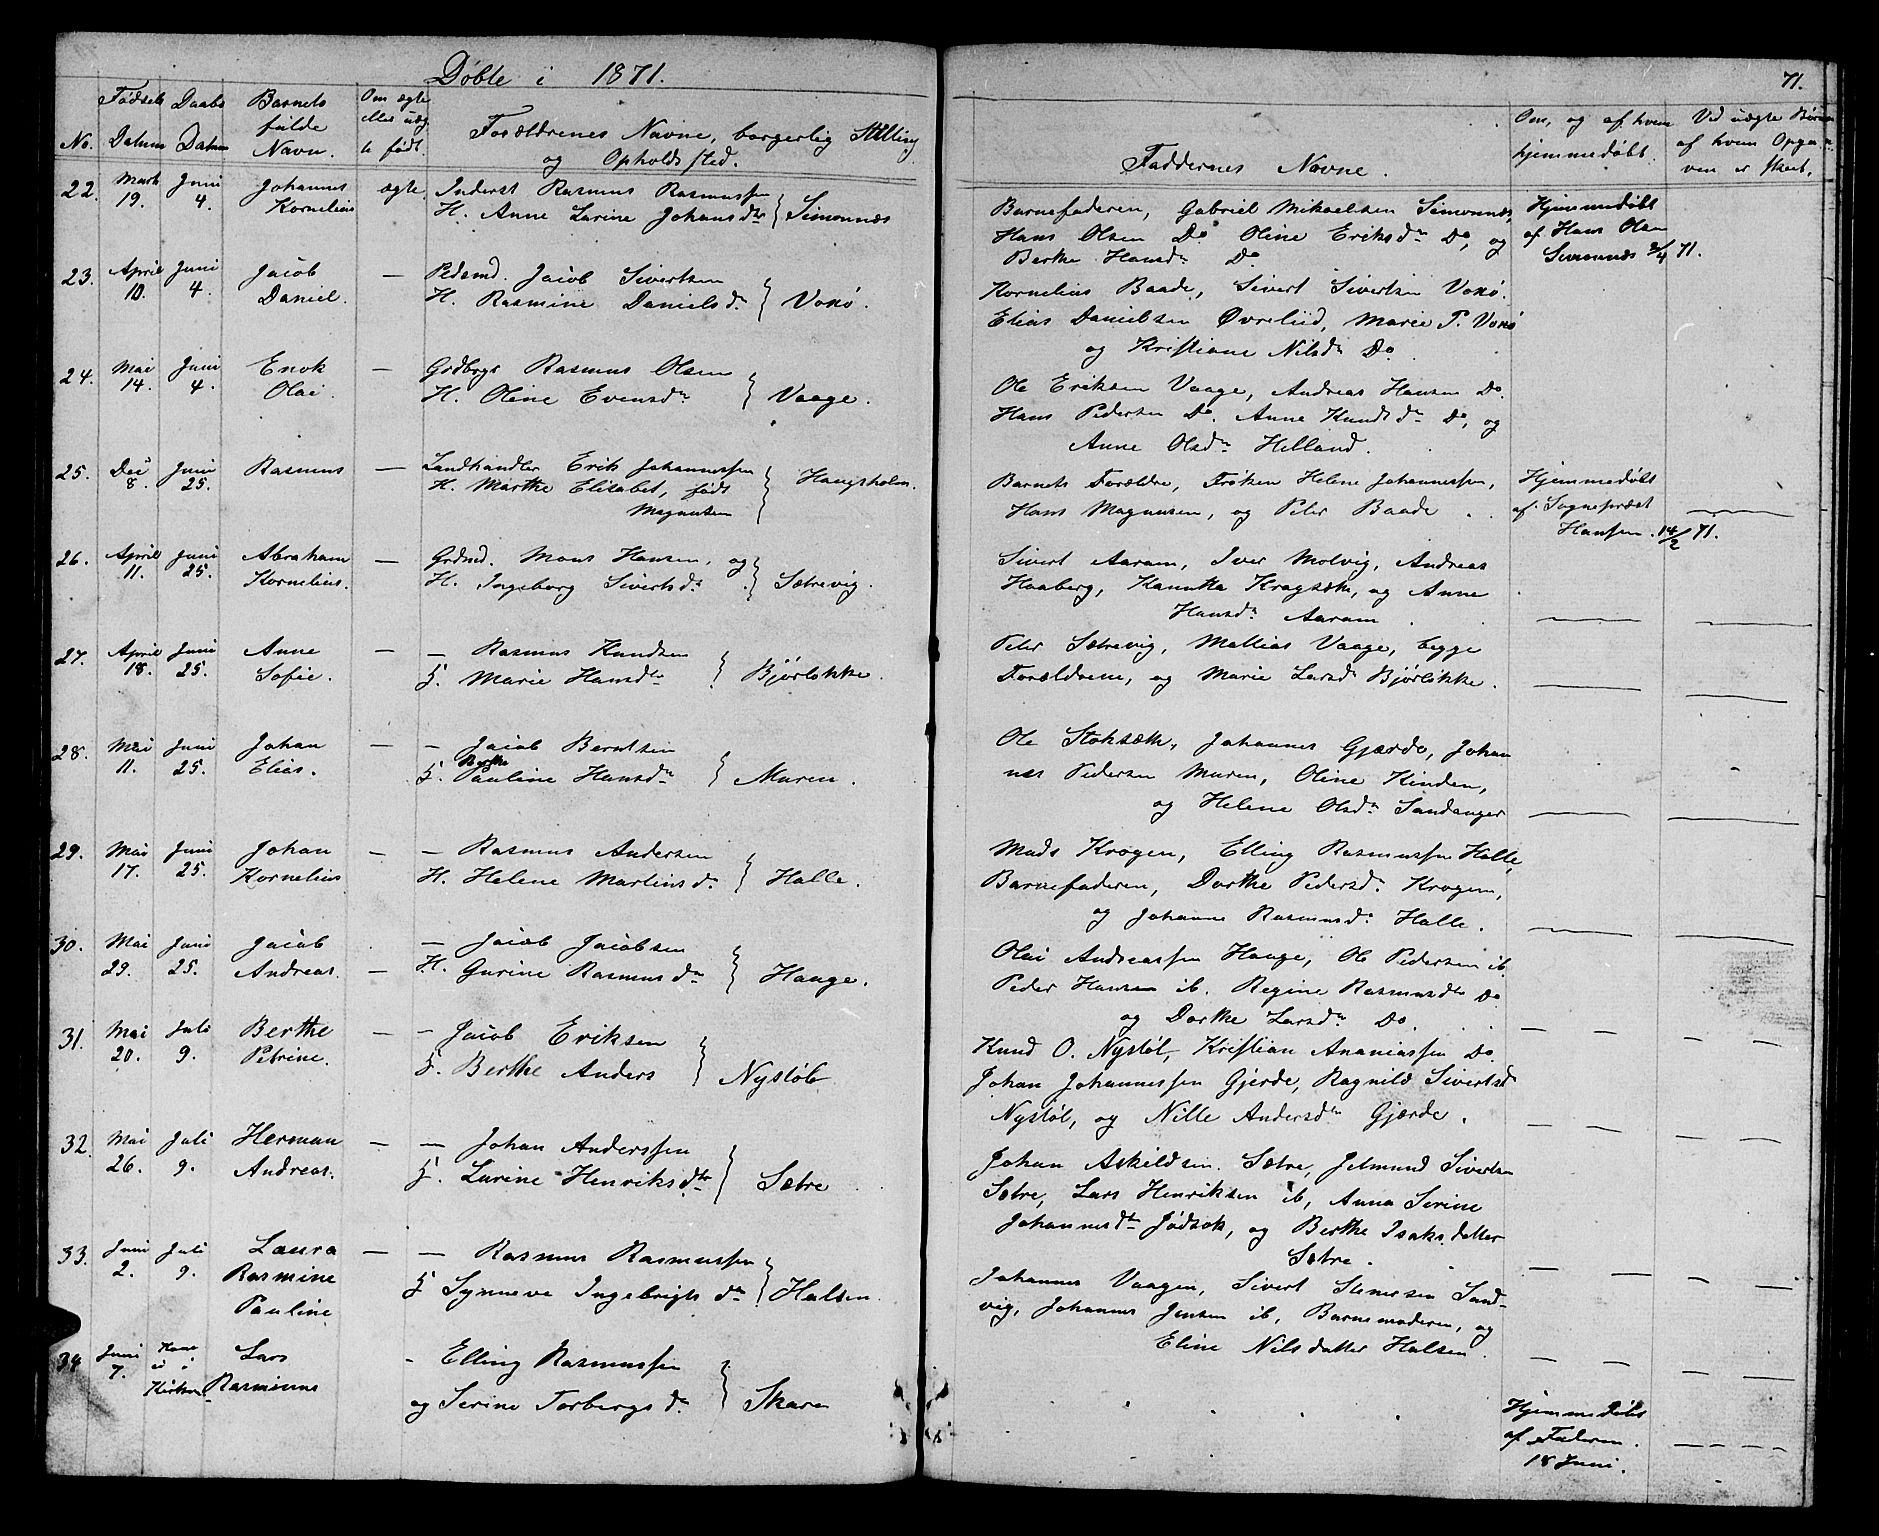 Døbte i 1871.
71.
No.
Fødsels Datum
Daabs Datum
Barnets fulde Navn.
Om ægte eller uægte født.
Forældrenes Navne, borgerlig Stilling
og Opholdssted.
Faddernes Navne.
Om, og af hvem hjemmedøbt.
Ved uægte Børn af hvem Opgaven er skeet.
22. Marts 19. Juni 4. Johannes Kornelius ægte
Inderst Rasmus Rasmussen
H. Anne Larine Johansdtr } Simonnæs
Barnefaderen, Gabriel Mikaelsen Simonnæs,
Hans Olsen Do Oline Eriksdr Do, og
Berthe Hansdr Do
Hjemmedøbt
af Hans Olsen
Simonnæs 3/4 71.
23. April 10. Juni 4. Jacob Daniel. —
Pdsmd. Jacob Sivertsen
H. Rasmine Danielsdr } Voxø.
Kornelius Baade, Sivert Sivertsen Voxø.
Elias Danielsen Øvrelid, Marie P. Voxø
og Kristiane Nilsdr Do.
24. Mai 14. Juni 4. Enok Olai. —
Grdbrgr Rasmus Olsen
H. Oline Evensdr } Vaage.
Ole Eriksen Vaage, Andreas Hansen Do.
Hans Pedersen Do. Anne Knudsdr Do, og
Anne Olsdr Helland.
25. Dec 8. Juni 25. Rasmus —
Landhandler Erik Johannessen
H. Marthe Elisabet, født
Magnusen } Haugsholm.
Barnets Forældre, Frøken Helene Johannessen,
Hans Magnusen, og Peter Baade.
Hjemmedøbt
af Sognepræst
Hansen. 14/2 71.
26. April 11. Juni 25. Abraham Kornelius. —
Grdmd. Mons Hansen, og
H. Ingeborg Sivertsdr } Sætrevig.
Sivert Aaram, Iver Molvig, Andreas
Haaberg, Kanutta Kragsæth, og Anne
Hansdr Aaram
27. April 18. Juni 25. Anne Sofie. —
— Rasmus Knudsen
H. Marie Hansdtr } Bjørløkke.
Peter Sætrevig, Mathias Vaage, begge
Forældrene, og Marie Larsdr Bjørløkke.
28. Mai 11. Juni 25. Johan Elias. —
— Jacob Berntsen
Berthe
H. Pauline Hansdr } Muren.
Ole Stoksæth, Johannes Gjærde, Johan
nes Pedersen Muren, Oline Kinden,
og Helene Olsdr Sandanger
29. Mai 17. Juni 25. Johan Kornelius —
— Rasmus Andersen
H. Helene Martinsdr } Halle.
Mads Krogen, Elling Rasmussen Halle,
Barnefaderen, Dorthe Pedersdr Krogen,
og Johanne Rasmusdr Halle.
30. Mai 29. Juni 25. Jacob Andreas. —
— Jacob Jacobsen
H. Gurine Rasmusdr } Hauge.
Olai Andreassen Hauge, Ole Pedersen ib.
Peder Hansen ib. Regine Rasmusdtr Do
og Dorthe Larsdr Do.
31. Mai 20. Juli 9. Berthe Petrine. —
— Jacob Eriksen
H. Berthe Anders } Nystøl
Knud O. Nystøl, Kristian Ananiassen Do.
Johan Johannessen Gjerde, Ragnild Sivertsdr
Nystøl, og Nille Andersdr Gjærde.
32. Mai 26. Juli 9. Herman Andreas. —
— Johan Anderssen
H. Larine Henriksdtr } Sætre
Johan Askildsen Sætre, Jetmund Sivertsen
Sætre, Lars Henriksen ib, Anna Serine
Johannesdtr Jødsok, og Berthe Isaksdatter
Sætre.
33. Juni 2. Juli 9. Laura Rasmine Pauline —
— Rasmus Rasmussen
H. Synneve Ingebrigtsdr } Halsen.
Johannes Vaagen, Sivert Stenersen Sand-
vig, Johannes Jensen ib, Barnemoderen, og
Eline Nilsdatter Halsen.
34 Juni 7. i Kirken Lars Rasminus
— Elling Rasmussen
og Serine Torbergsdr } Skare
Hjemmedøbt
af Faderen.
18 Juni.